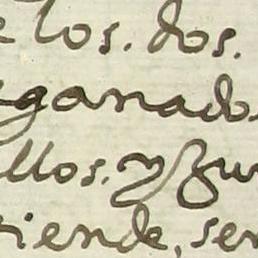 e los. dos.
eganado.
llos. y Zur
tiende, ser